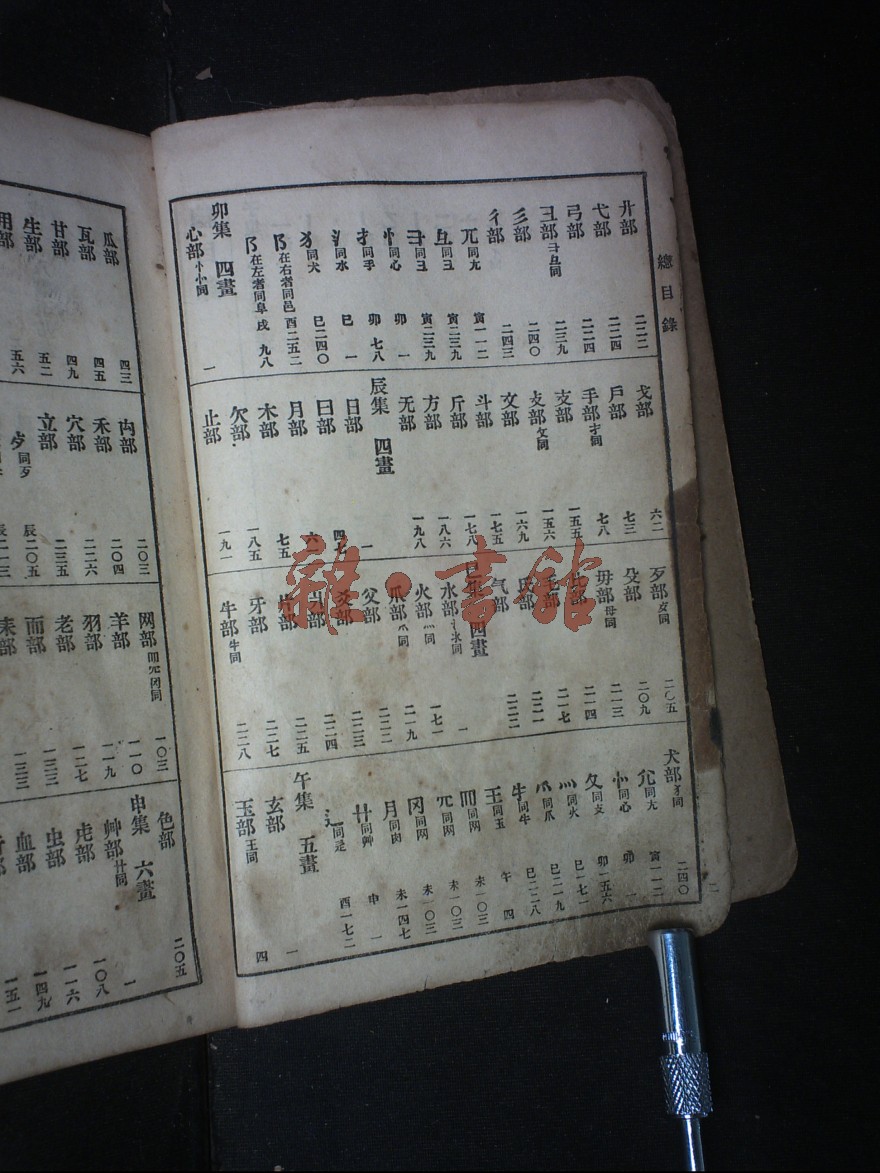 總目錄
廾部 二二二
弋部 二二四
弓部 二二四
彐部 彑⺕同 二三九
彡部 二四〇
彳部 二四三
兀同尢 寅一一二
彑同彐 寅二三九
⺕同彐 寅二三九
忄同心 卯一
扌同手 卯七八
氵同水 巳一
犭同犬 巳二四〇
阝在右者同邑 酉二五二
阝在左者同阜 戌九八
卯集 四畫
心部 忄㣺同 一
戈部 六二
戶部 七三
手部 扌同 七八
支部 一五五
攴部 攵同 一五六
文部 一六九
斗部 一七五
斤部 一七八
方部 一八六
无部 一九八
辰集 四畫
日部 一
曰部 四七
月部 六
木部 七五
欠部 一八五
止部 一九一
歹部 歺同 二〇五
殳部 二〇九
毋部 母同 二一三
二一四
毛部 二一七
氏部 二二一
气部 二二二
巳集 四畫
水部 氵氺同 一
火部 灬同 一七一
爪部 爫同 二一九
父部 二二二
爻部 二二三
爿部 二二四
片部 二二五
牙部 二二七
牛部 牜同 二二八
犬部 犭同 二四〇
尣同尢 寅一一二
㣺同心 卯一
攵同攴 卯一五六
灬同火 巳一七一
爫同爪 巳二一九
牜同牛 巳二二八
王同玉 午四
罒同网 未一〇三
同网 未一〇三
冈同网 未一〇三
月同肉 未一四七
艹同艸 申一
辶同辵 酉一七二
午集 五畫
玄部 一
玉部 王同 四
瓜部 四三
瓦部 四五
甘部 四九
生部 五二
用部 五六
禸部 二〇三
禾部 二〇四
穴部 二二六
立部 二三五
歺同歹 辰二〇五
辰二一三
网部 一〇三
羊部 一一〇
羽部 一一九
老部 一二七
而部 一三二
耒部 一三三
色部 二〇五
申集 六畫
艸部 艹同 一
虍部 一〇八
虫部 一一六
血部 一四九
一五一
雜·書館